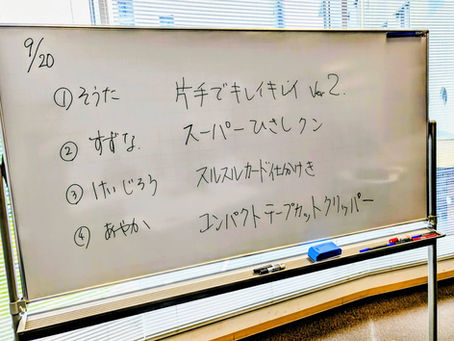 9/20
① そうた 片手でキレイキレイ ver2.
② すずな. スーパーひさしクン
③ けいじろう スルスルカード仕分けき
④ あやか コンパクトテープカットクリッパー